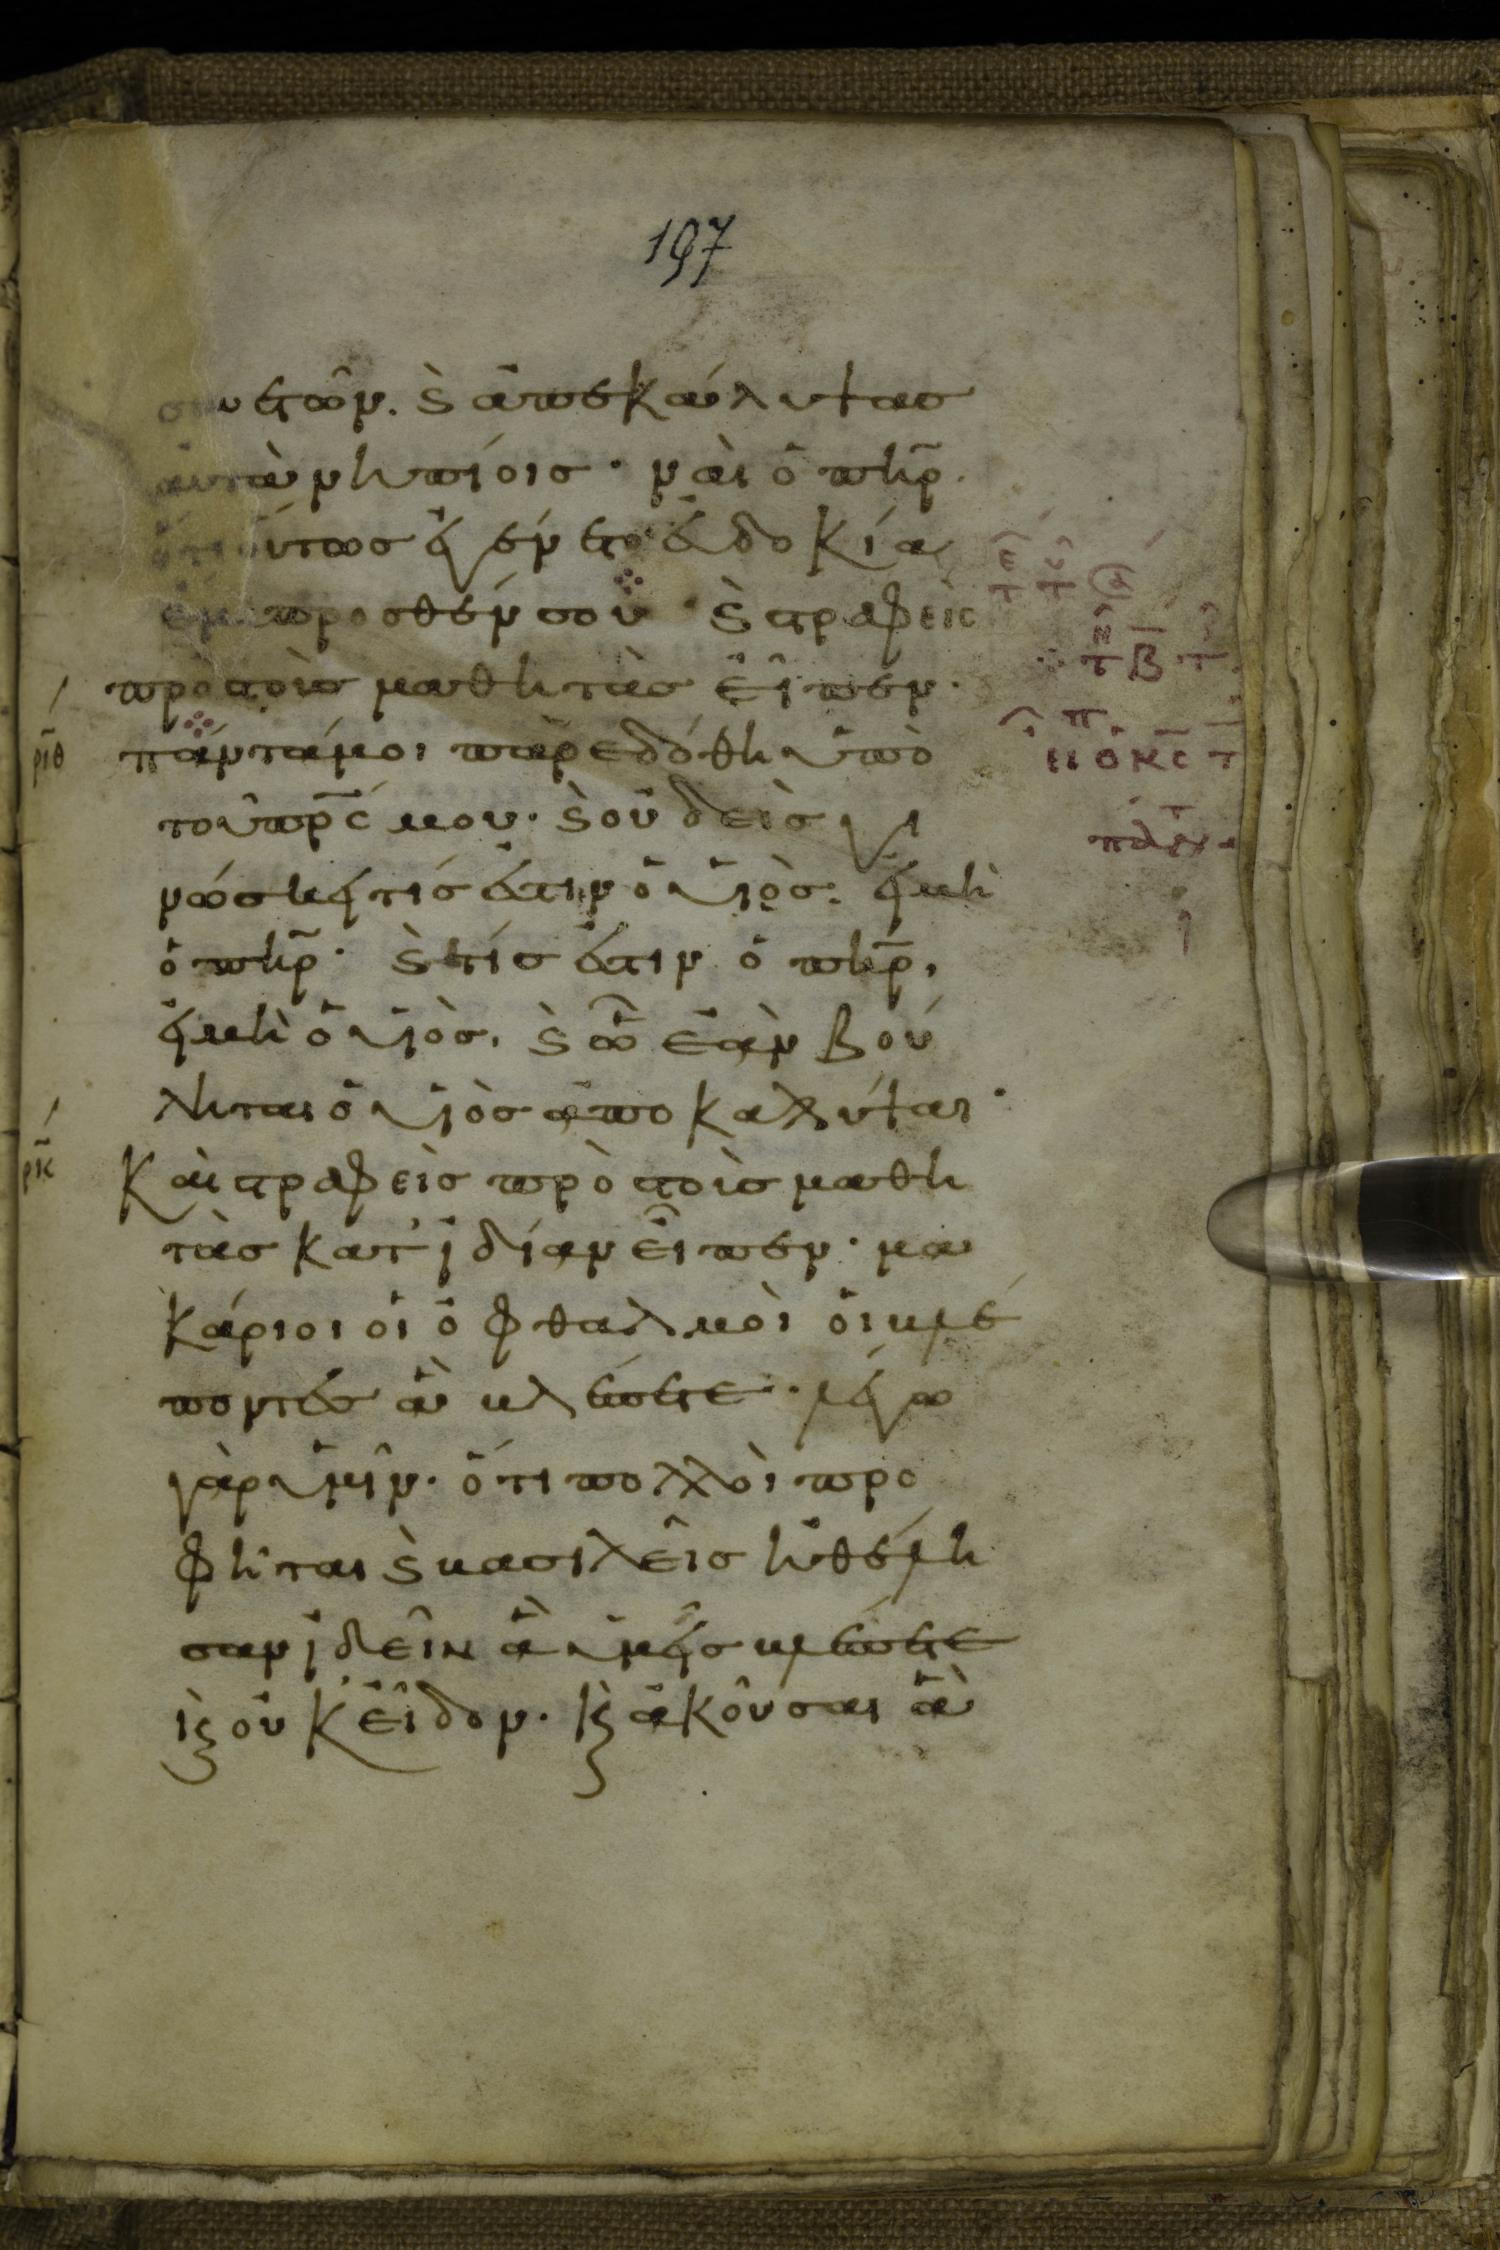 197
συνετῶν. ϗ ἀπεκάλυψας
αὐτὰ νηπίοις· ναὶ ὁ πηρ̅.
ὅτι οὕτως ἐγένετο εὐδοκία
ἔμπροσθέν σου· ϗ στραφεὶς
πρὸς τοὺς μαθητὰς εἶπεν·
ριθ πάντά μοι παρεδόθη ὑπὸ
τοῦ πρ̅ς μου· ϗ οὐδεὶς γι
νώσκει τίς ἐστιν ὁ υἱὸς. εἰ μὴ
ὁ πηρ̅· ϗ τίς ἐστιν ὁ πηρ̅,
εἰ μὴ ὁ υἱὸς, ϗ ὧ ἐὰν βού
ληται ὁ υἱὸς ἀποκαλύψαι·
ρκ Καὶ στραφεὶς πρὸς τοὺς μαθη
τὰς κατ' ἰδίαν εἶπεν· μα
κάριοι οἱ ὀφθαλμοὶ οἱ βλέ
ποντες ἃ βλέπετε· λέγω
γὰρ ὑμῖν· ὅτι πολλοὶ προ
φῆται ϗ βασιλεῖς ἠθέλη
σαν ἰδεῖν ἃ ὑμεῖς βλέπετε
κ̣ οὐκ εἶδον· κ̣ ἀκοῦσαι ἃ